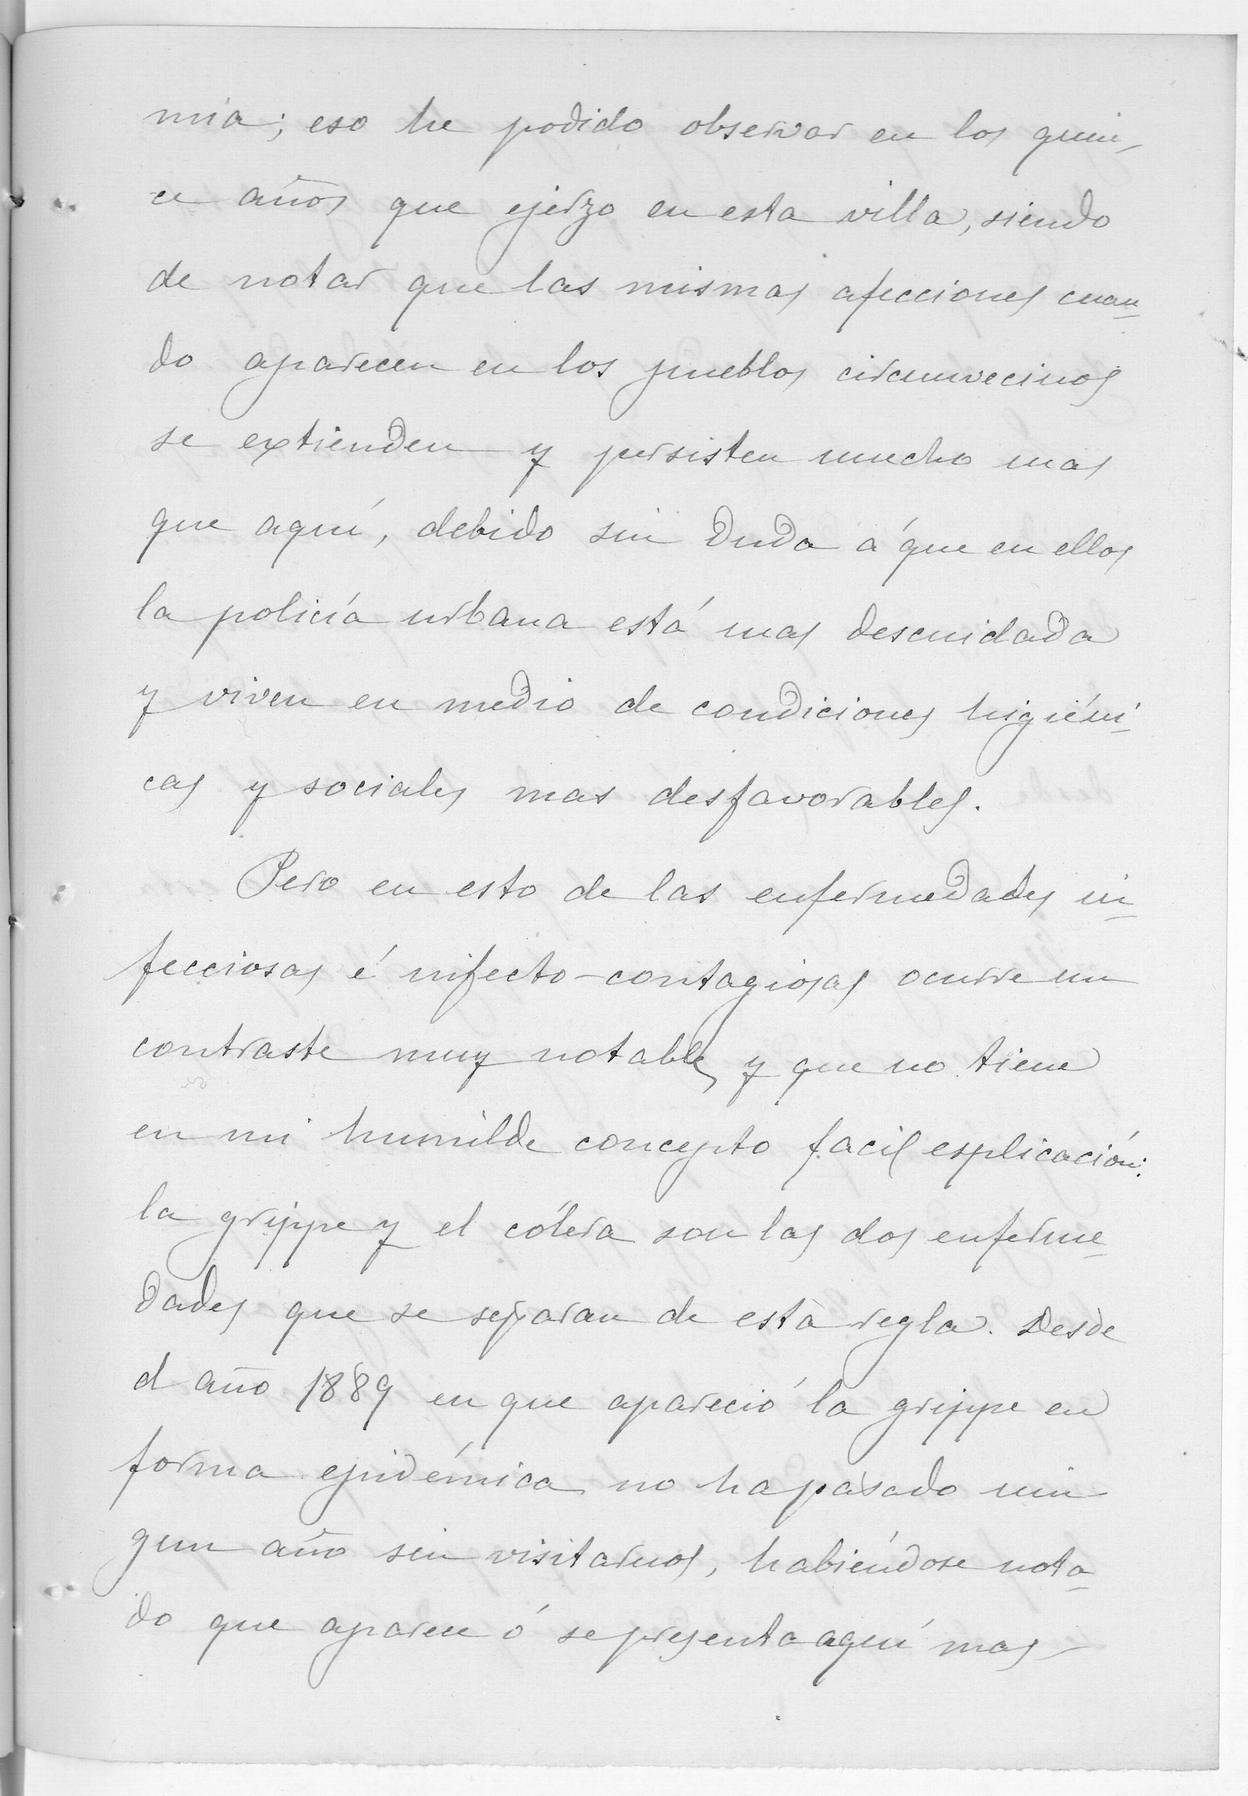 mia; eso he podido observar en los quin-
ce años que ejerzo en esta villa, siendo
de notar que las mismas afecciones cuan-
do aparecen en los pueblos circunvecinos
se extienden y persisten mucho mas
que aquí, debido sin duda á que en ellos
la policía urbana está mas descuidada
y viven en medio de condiciones higiéni-
cas y sociales mas desfavorables.
Pero en esto de las enfermedades in-
fecciosas é infecto-contagiosas ocurre un
contraste muy notable, y que no tiene
en mi humilde concepto facil esplicación:
la grippe y el cólera son las dos enferme-
dades que se separan de esta regla. Desde
el año 1889 en que apareció la grippe en
forma epidémica no ha pasado nin-
gun año sin visitarnos, habiéndose nota-
do que aparece ó se presenta aquí mas